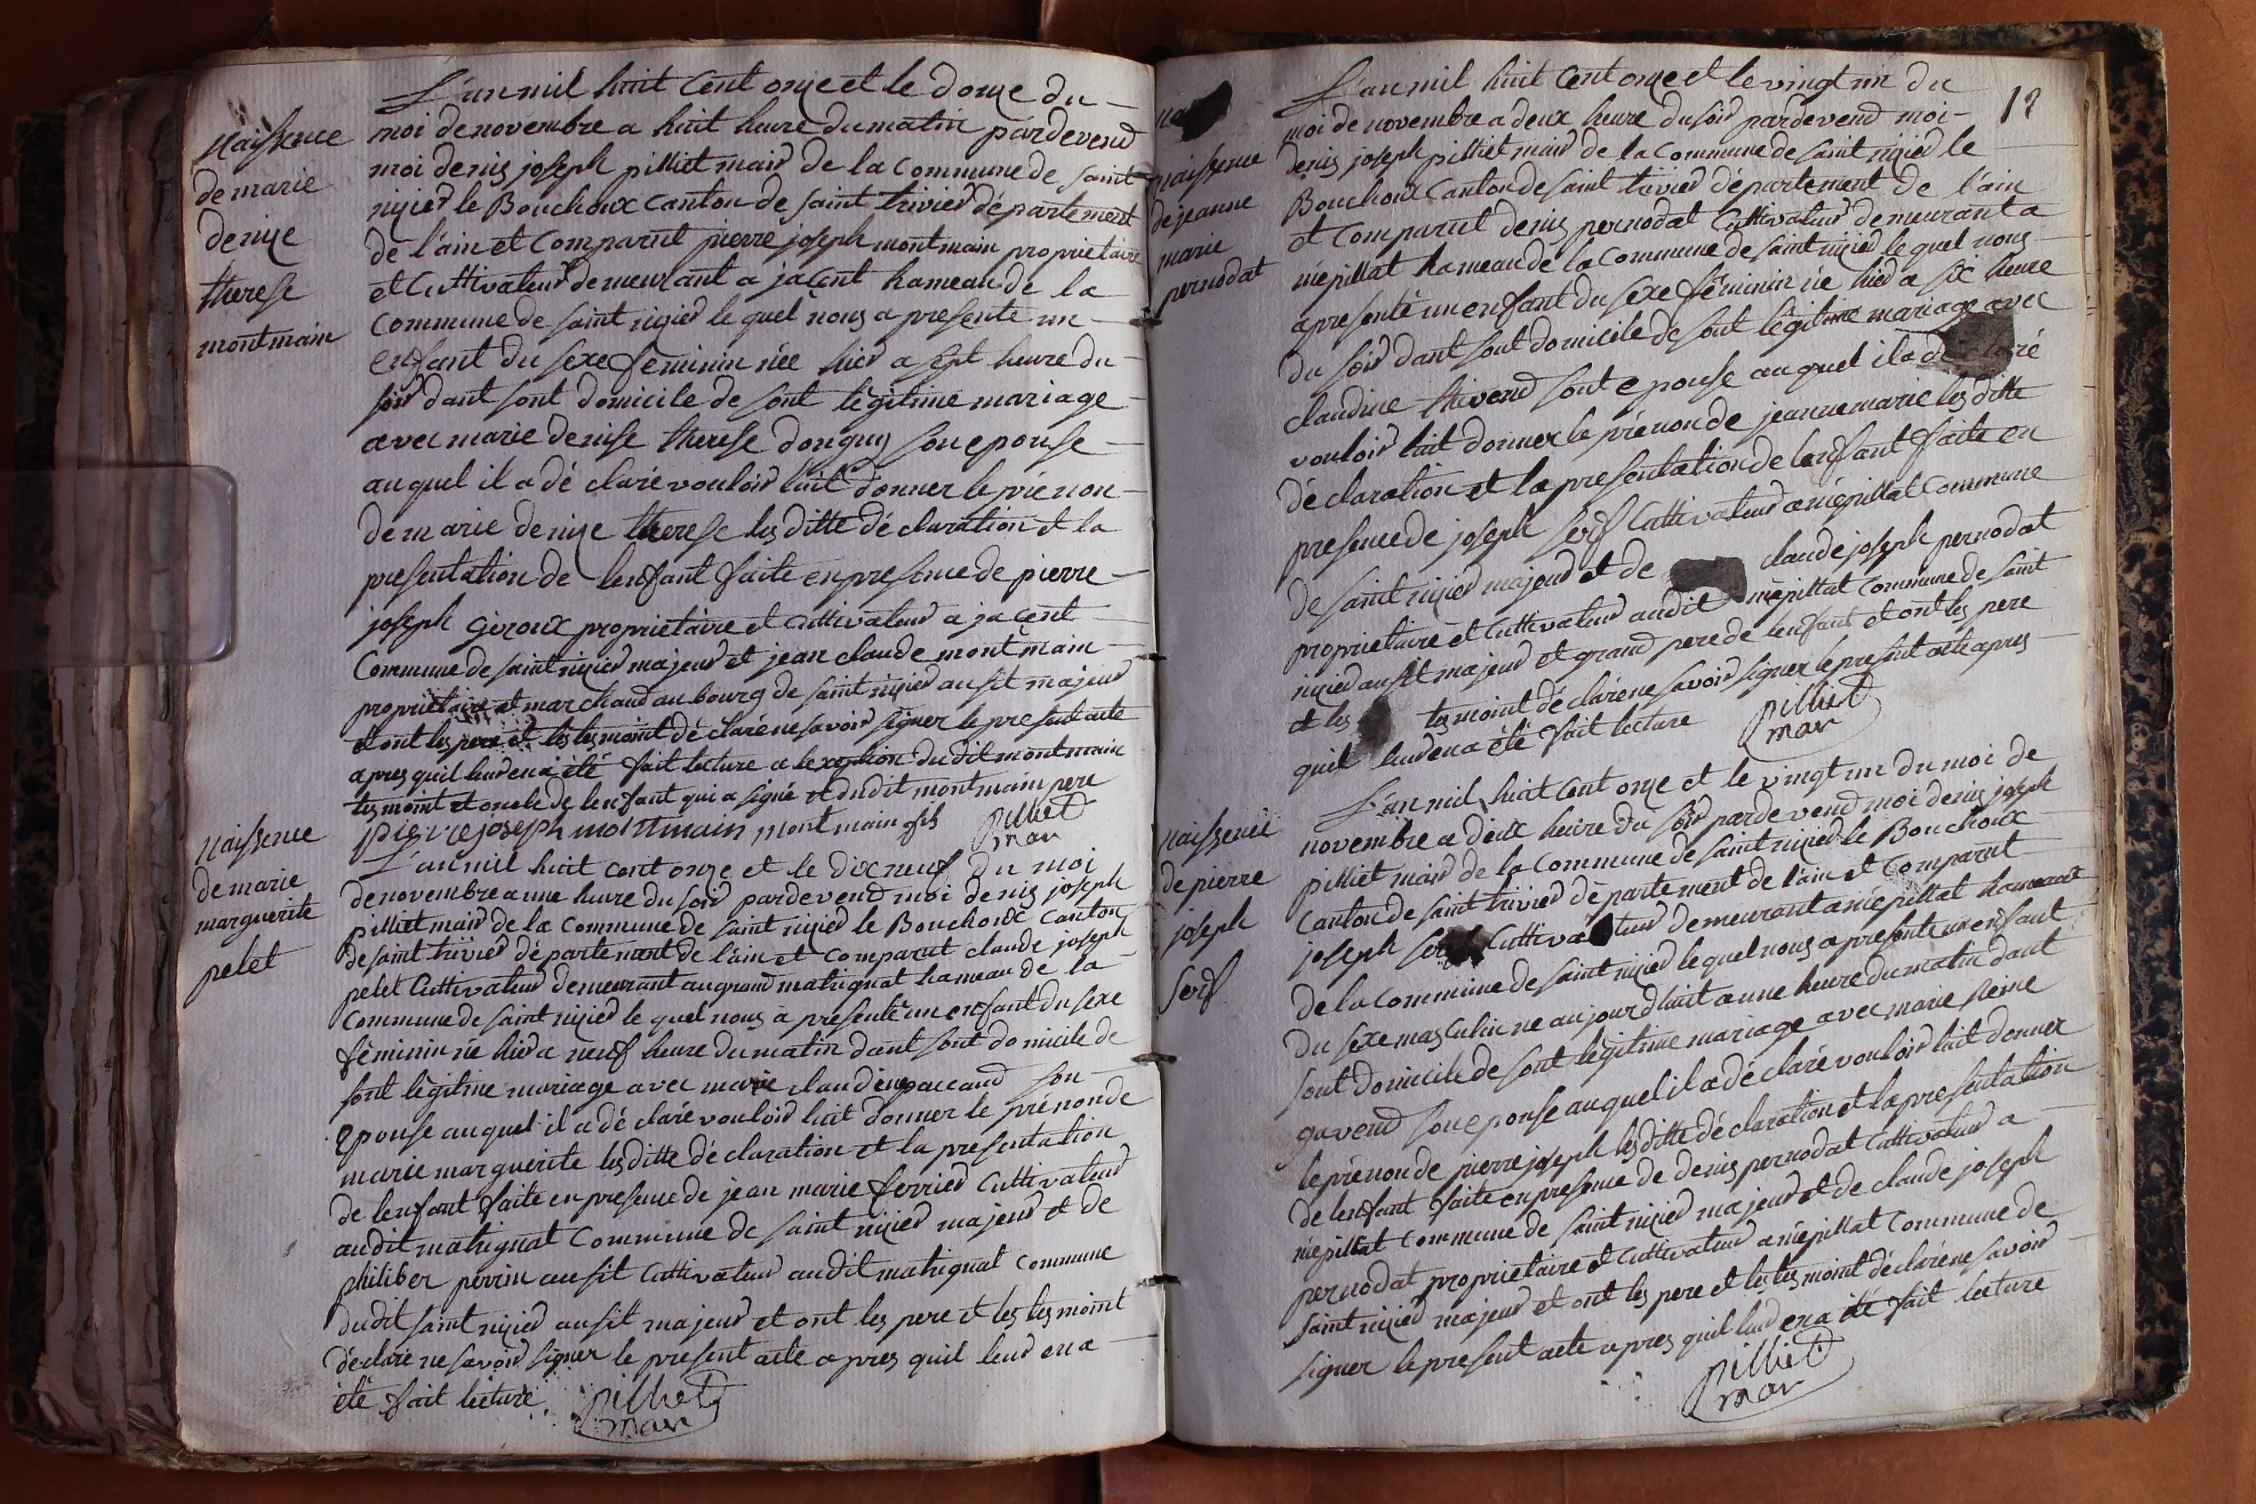 Naissence
de marie
denize
therese
montmain
L'an mil huit Cent onze et le douze du
moi de novembre a huit heure du matin pardevend
moi denis joseph pilliet maire de la Commune de saint
nizier le Bouchoux canton de saint trivier département
de l'ain et Comparut pierre joseph montmain proprietaire
et Cultivateur demeurant a jacent hameau de la
Commune de saint nizier le quel nous a presente un
enfant du sexe feminin née hier a sept heure du
soir dant sont domicile de sont légitime mariage
avec marie denise therese donguy son epouse
auquel il a dé claré vouloir luit donner le prénon
de marie denize therese les ditte dé claration et la
presentation de lenfant faite en presence de pierre
joseph giroux proprietaire et cultivateur a jacent
Commune de saint nizier majeur et jean claude montmain
proprietaire et marchand au bourg de saint nizier ausit majeur
et ont les pere et les tesmoint dé claré ne savoir signer le present acte
apres quil leur en a été fait lecture a lexeption dudit montmain
tesmoint et oncle de lenfant qui a signé et dudit montmain pere
pierre joseph montmain montmain fils pilliet
mar
Naissence
de marie
marguerite
pelet
L'an mil huit cent onze et le dix neuf du moi
de novembre a une heure du soir pardevend moi denis joseph
pilliet maire de la Commune de saint nizier le Bouchoux Canton
de saint trivier département de l'ain et Comparut claude joseph
pelet Cultivateur demeurant au grand matignat hameau de la
Commune de saint nizier le quel nous à presenté un enfant du sexe
féminin née hier a neuf heure du matin dant sont domicile de
sont légitime mariage avec marie claudine paccaud son
epouse auquel il a dé claré vouloir luit donner le prénon de
marie marguerite les ditte dé claration et la presentation
de lenfant faite en presence de jean marie ferrier Cultivateur
audit matignat Commune de saint nizier majeur et de
philiber perrin ausit Cultivateur audit matignat Commune
dudit saint nizier ausit majeur et ont les pere et les tesmoint
déclare ne savoir signer le present acte apres quil leur en a
été fait lecture pilliet
mar
12
naissence
de jeanne
marie
pernodat
L'an mil huit Cent onze et le vingt un du
moi de novembre a deux heure du soir pardevend moi
denis joseph pilliet maire de la Commune de saint nizier le
Bouchoux Canton de saint trivier département de l'ain
et Comparut denis pernodat Cultivateur demeurant a
niépillat hameau de la Commune de saint nizier le quel nous
a presenté un enfant du sexe féminin née hier a six heure
du soir dant sont domicile de sont légitime mariage avec
claudine thivend sont epouse auquel il a dé claré
vouloir luit donner le prénon de jeanne marie les ditte
déclaration et la presentation de lenfant faite en
presence de joseph serf Cultivateur a niépillat Commune
de saint nizier majeur et de claude joseph pernodat
proprietaire et Cultivateur audit niépillat Commune de saint
nizier ausit majeur et grand pere de lenfant et ont les pere
et les tesmoint dé claré ne savoir signer le present acte apres
quil leur en a été fait lecture pilliet
mar
naissence
de pierre
joseph
serf
L'an mil huit Cent onze et le vingt un du moi de
novembre a deux heure du soir pardevend moi denis joseph
pilliet maire de la Commune de saint nizier le Bouchoux
Canton de saint trivier département de l'ain et Comparut
joseph serf Cultivateur demeurant a niépillat hameau
de la Commune de saint nizier le quel nous a presenté un enfant
du sexe masculin ne aujourdhuit a une heure du matin dant
sont domicile de sont légitime mariage avec marie reine
gavend son epouse auquel il a dé claré vouloir luit donner
le prénon de pierre joseph les ditte dé claration et la presentation
de lenfant faite en presence de denis pernodat Cultivateur a
niépillat Commune de saint nizier majeur et de claude joseph
pernodat proprietaire et Cultivateur a niépillat Commune de
saint nizier majeur et ont les pere et les tesmoint dé claré ne savoir
signer le present acte apres quil leur en a été fait lecture
pilliet
mar